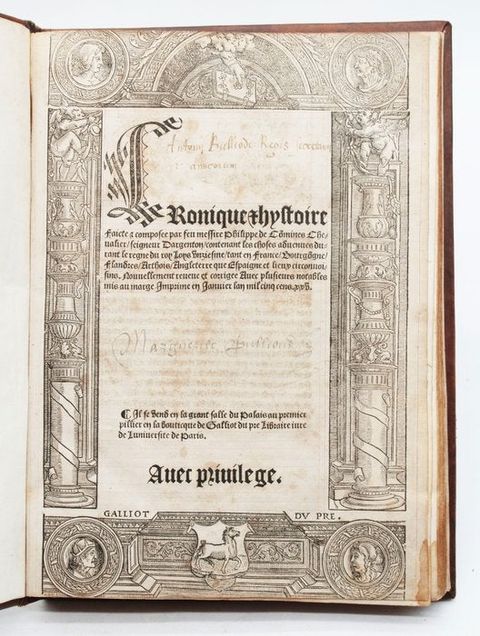 Antonij Bullioud Regis
CRonique ⁊ hystoire
Faicte ⁊ composee par feu messire Philippe de Cōmines Che
ualier/seigneur Dargenton/contenant les choses aduenues du
rant le regne du roy Loys vnziesme/tant en France/Bourgōgne/
Flandres/Arthois/Angleterre que Espaigne et lieux circonuoi
sins. Nouuellement reueue et corrigee Auec plusieurs notables
mis au marge Imprime en Januier lan mil cinq cens .xxv.
Marguerite Bullioud
¶ Il se vend en la grant salle du Palais au premier
pillier en la bouticque de Galliot du pre Libraire iure
de Luniuersite de Paris.
Auec priuilege.
GALLIOT DV PRE.